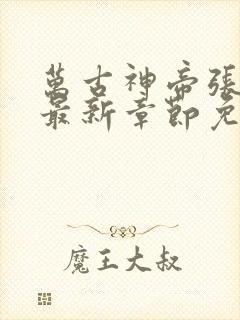 萬古神帝張
最新章節免
魔王大叔